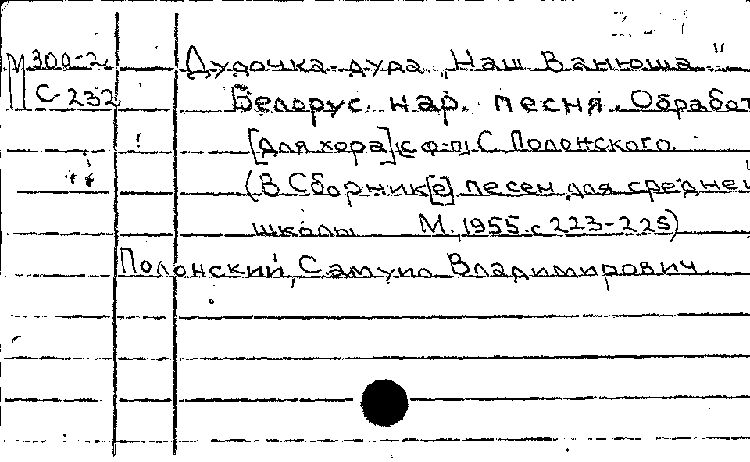 М 300-2
С-232
Дудочка-дура „Наш Ванюша"
Белорус. нар. песня. Обработ
[для хора] с ф-п. С. Полонского.
(В Сборник[е] песен для средней
школы М., 1955. с 223-225)
Полонский, Самуил Владимирович